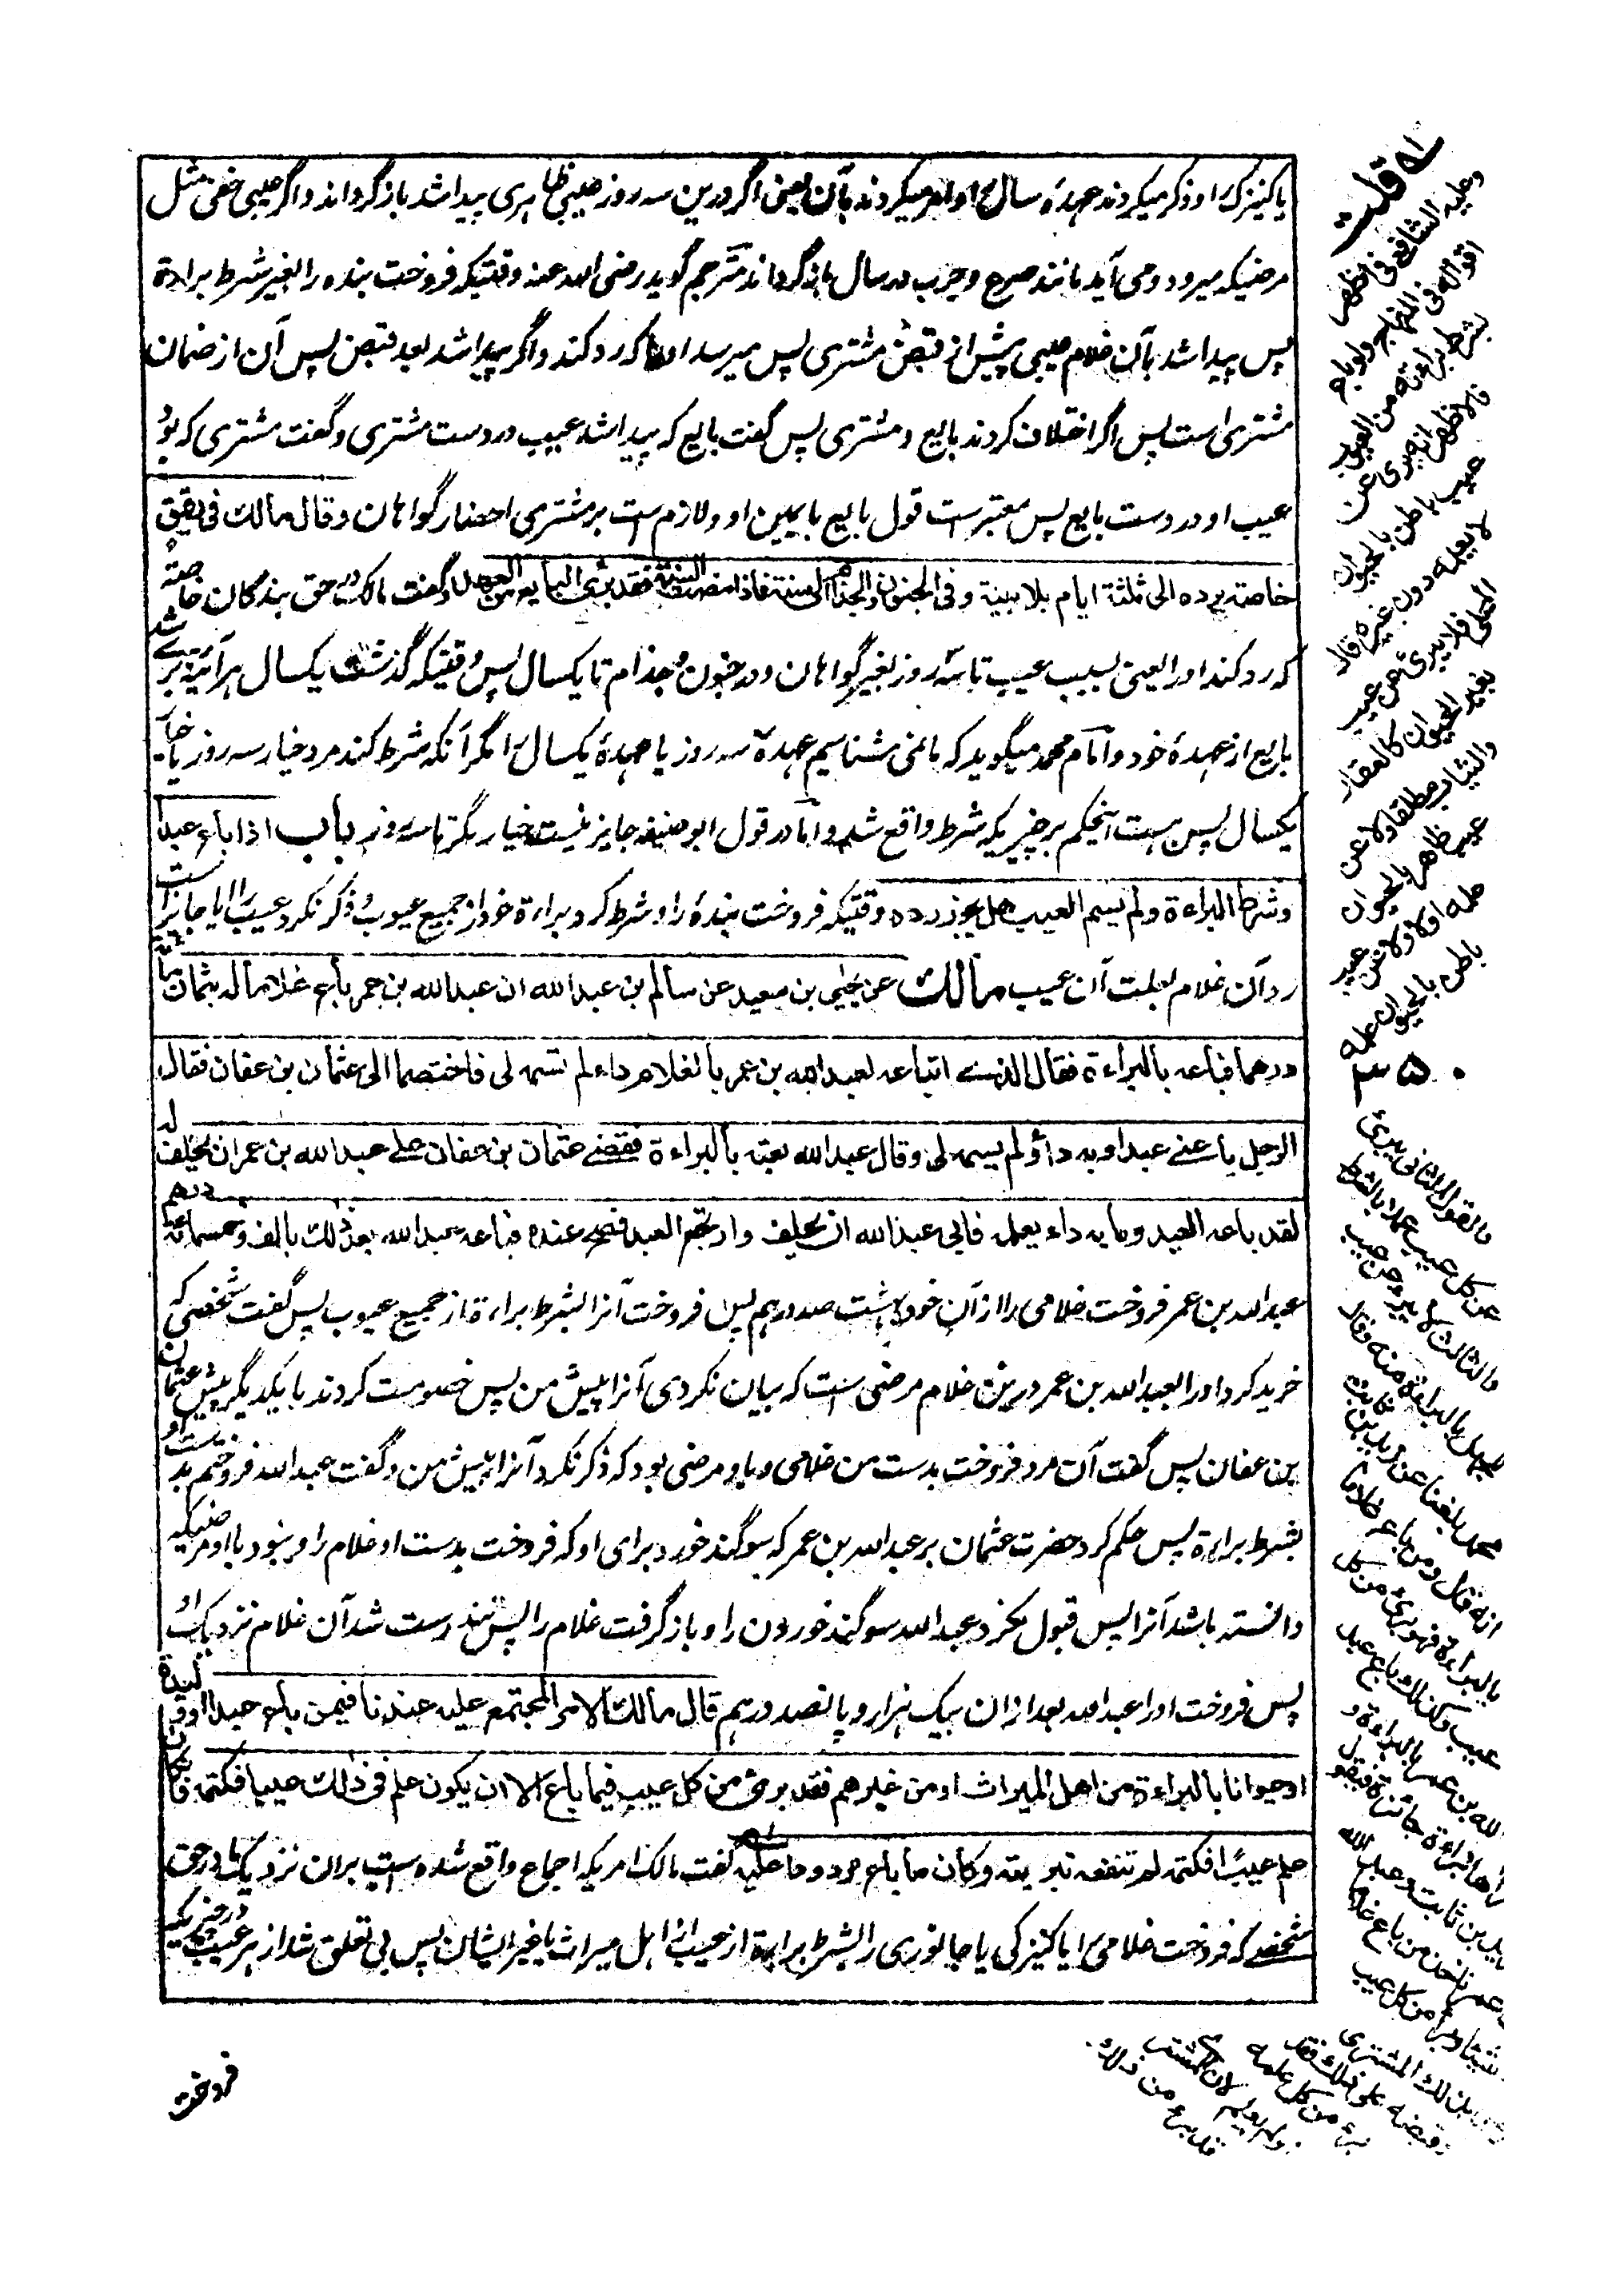 یا کنیزک را و ذکر میکردند عهدهٔ سال را و امر میکردند بآن یعنی اگر درین سه روز عیبی ظاهری پیدا شد باز گرداند و اگر عیبی خفی مثل
مرضیکه میرود و می آید مانند صرع و جرب در سال باز گرداند مترجم گوید رضی الله عنه وقتیکه فروخت بنده را بغیر شرط براءة
پس پیدا شد بآن غلام عیبی پیش از قبض مشتری پس میرسد او را که رد کند و اگر پیدا شد بعد قبض پس آن از ضمان
مشتری است پس اگر اختلاف کردند بایع و مشتری پس گفت بایع که پیدا شد عیب در دست مشتری و گفت مشتری که بود
عیب او در دست بایع پس معتبر است قول بایع با یمین او و لازم است بر مشتری احضار گواهان وقال مالك فی رقیق
خاصة یرده الی ثلثة ایام بلا بینة وفی الجنون والجذام الی سنة فاذا مضت السنة فقد برئ البایع من العهدة گفت مالک در حق بندگان خاصةً
که رد کند او را یعنی بسبب عیب تا سه روز بغیر گواهان و در جنون و جذام تا یکسال پس وقتیکه گذشت یکسال هر آئینه بری شد
بایع از عهدهٔ خود و امام محمد میگوید که ما نمی شناسیم عهدة سه روز یا عهدهٔ یکسال را مگر آنکه شرط کند مرد خیار سه روز یا خیار
یکسال پس هست اینحکم بر چیزیکه شرط واقع شد و اما در قول ابو حنیفه جایز نیست خیار مگر تا سه روز باب اذا باع عبدا
وشرط البراءة ولم یسم العیب هل یجوز رده وقتیکه فروخت بندهٔ را و شرط کرد براءة خود از جمیع عیوب و ذکر نکرد عیب را آیا جائز است
رد آن غلام بعلت آن عیب مالك عن یحیی بن سعید عن سالم بن عبد الله ان عبد الله بن عمر باع غلاما له بثمان مائة
درهم فباعه بالبراءة فقال الذی ابتاعه لعبد الله بن عمر بالغلام داء لم تسمه لی فاختصما الی عثمان بن عفان فقال
الرجل باعنی عبدا وبه داء لم یسمه لی وقال عبد الله بعته بالبراءة فقضی عثمان بن عفان علی عبد الله بن عمر ان یحلف له
لقد باعه العبد وما به داء یعلمه فابی عبد الله ان یحلف وارتجع العبد فصح عنده فباعه عبد الله بعد ذلك بالف وخمسمائة درهم
عبد الله بن عمر فروخت غلامی را از آن خود بهشت صد درهم پس فروخت آنرا بشرط براءة از جمیع عیوب پس گفت شخصی که
خرید کرد او را بعبد الله بن عمر درین غلام مرضی است که بیان نکردی آنرا پیش من پس خصومت کردند با یکدیگر پیش عثمان
بن عفان پس گفت آن مرد فروخت بدست من غلامی و باو مرضی بود که ذکر نکرد آنرا پیش من و گفت عبد الله فروختم بدست او
بشرط براءة پس حکم کرد حضرت عثمان بر عبد الله بن عمر که سوگند خورد برای او که فروخت بدست او غلام را و نبود با او مرضیکه
دانسته باشد آنرا پس قبول نکرد عبد الله سوگند خوردن را و باز گرفت غلام را پس تندرست شد آن غلام نزدیک او
پس فروخت او را عبد الله بعد ازان بیک هزار و پانصد درهم قال مالك الامر المجتمع علیه عندنا فیمن باع عبدا او ولیدة
او حیوانا بالبراءة من اهل المیراث او من غیرهم فقد برئ من کل عیب فیما باع الا ان یکون علم فی ذلك عیبا فکتمه فان کان
علم عیبا فکتمه لم تنفعه تبریته وکان ما باع مردودا علیه گفت مالک امریکه اجماع واقع شده است بران نزدیک ما در حق
شخصیکه فروخت غلامی را یا کنیزکی یا جانوری را بشرط براءة از عیب از اهل میراث یا غیر ایشان پس بی تعلق شد از هر عیب در چیزیکه
فروخت
قلت
وعلیه الشافعی فی اظهر
اقواله فی المنهاج ولو باع
بشرط براءته من العیوب
فالاظهر انه یبرئ عن
عیب باطن بالحیوان
لا یعلمه دون غیره قال
المحلی فلا یبرئ عن عیب
بغیر الحیوان کالعقار
والثیاب مطلقا ولا عن
عیب ظاهر بالحیوان
علمه او لا ولا عن عیب
باطن بالحیوان علمه
والقول الثانی یبرئ
عن کل عیب عملا بالشرط
والثالث لا یبرء من عیب
محمد بلغنا عن زید بن ثابت
انه قال من باع غلاما
بالبراءة فهو بری من کل
عیب وکذلك باع عبد
الله بن عمر بالبراءة و
رآها براءة جائزة فبقول
زید بن ثابت وعبد الله
بن عمر ناخذ من باع غلاما